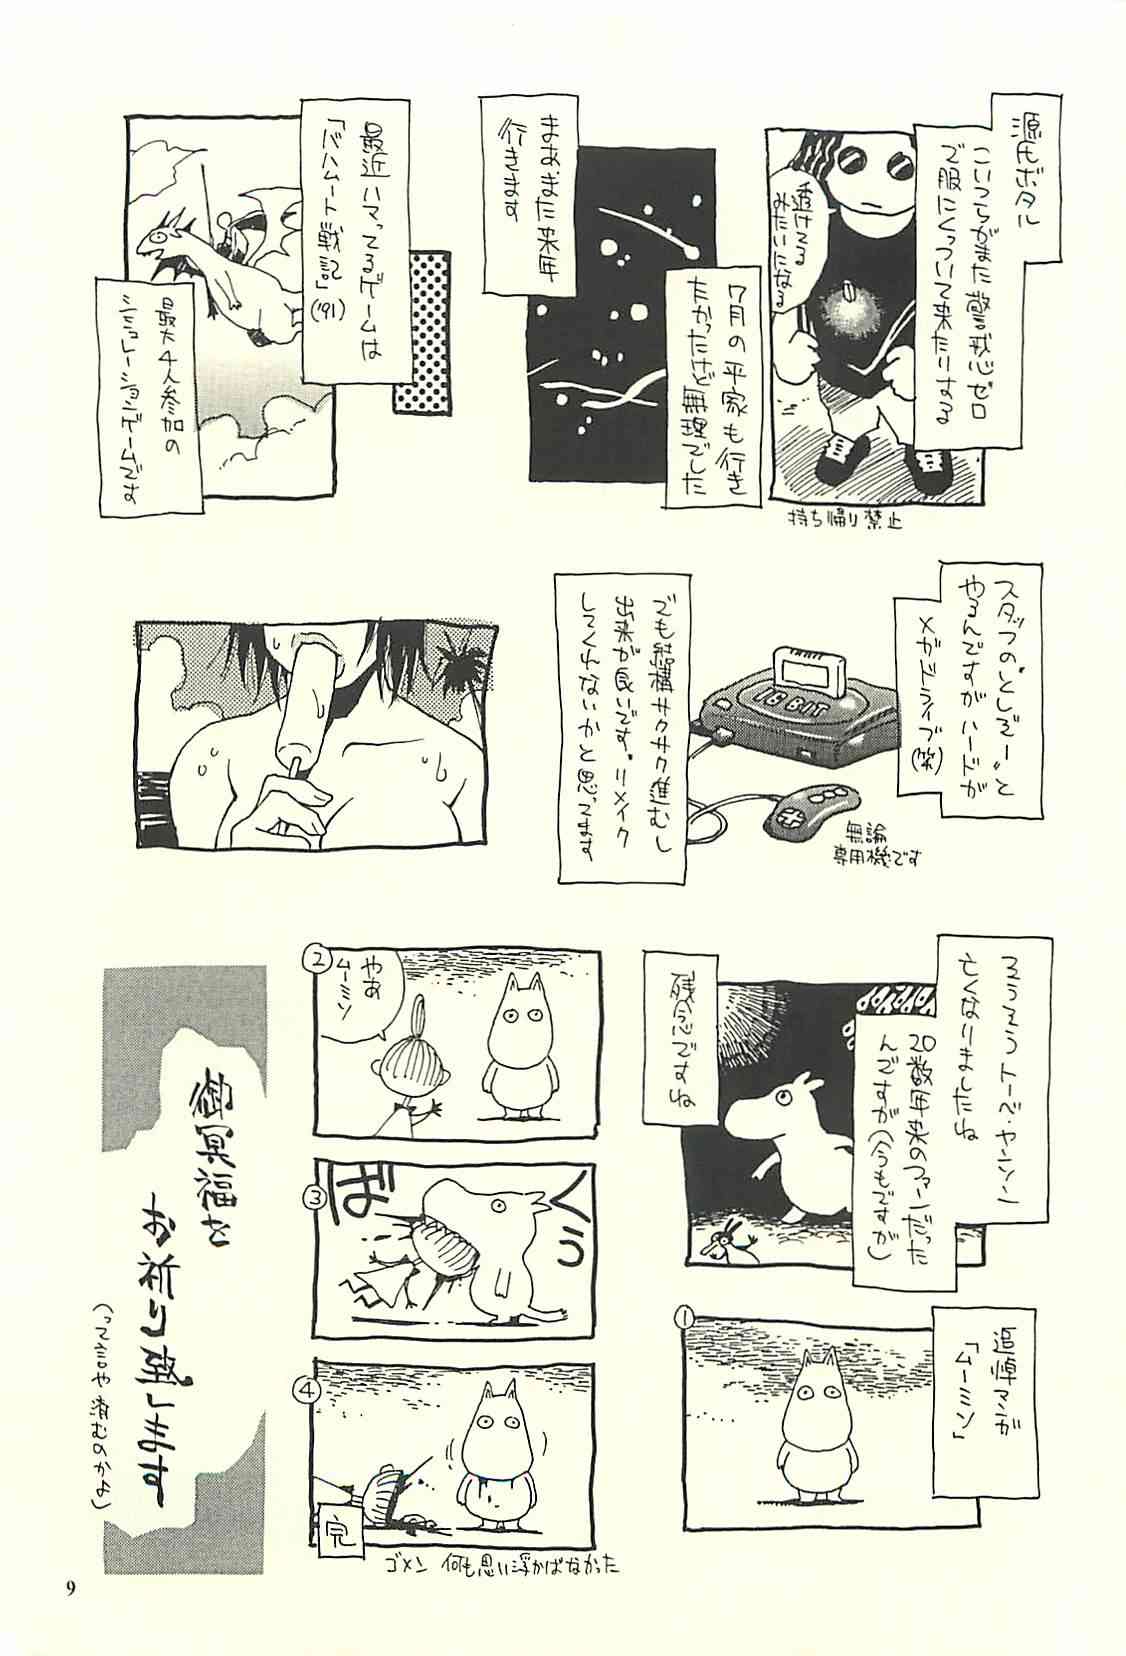 源氏ボタル
こいつらがまた警戒心ゼロ
で服にくっついて来たりする
透けてる
みたいになる
持ち帰り禁止
7月の平家も行き
たかったけど無理でした
まあまた来年
行きます
最近ハマってるゲームは
「バハムート戦記」('91)
最大4人参加の
シミュレーションゲームです
スタッフの"としぞー"と
やるんですがハードが
メガドライブ(笑)
16 BIT
無論
専用機です
でも結構サクサク進むし
出来が良いです。リメイク
してくれないかと思ってます
そうそうトーベ・ヤンソン
亡くなりましたね
20数年来のファンだった
んですが(今もですが)
残念ですね
追悼マンガ
「ムーミン」
①
②
やあ
ムーミン
③
ばくぅ
④
完
ゴメン 何も思い浮かばなかった
御冥福を
お祈り致します
(って言や済むのかよ)
9